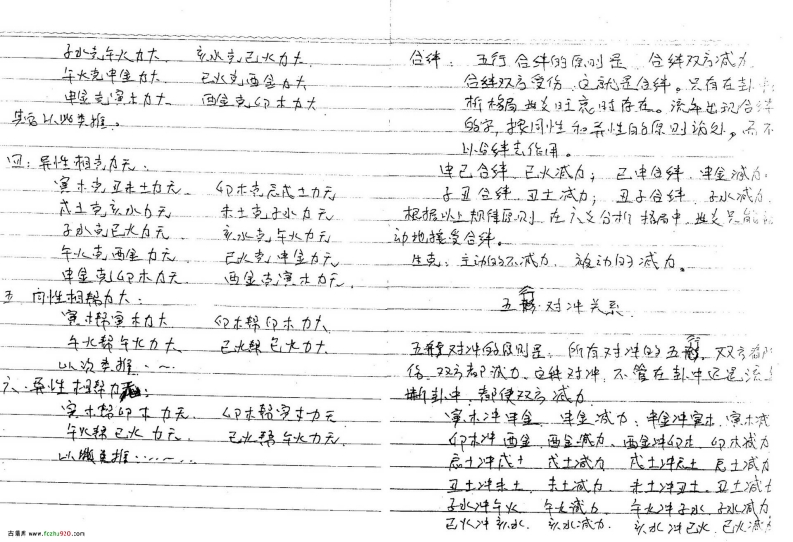 子水克午火力大、 亥水克巳火力大
午火克申金力大、 巳火克酉金力大
申金克寅木力大 酉金克卯木力大
其它以此类推。
四:异性相克力无:
寅木克丑未土力无、 卯木克辰戌土力无
戊土克亥水力无 未土克子水力无
子水克巳火力无、 亥水克午火力无
午火克酉金力无、 巳火克申金力无
申金克卯木力无 酉金克寅木力无
五 同性相帮力大:
寅木帮寅木力大 卯木帮卯木力大
午火帮午火力大、 巳火帮巳火力大
以次类推
六、异性相帮力无:
寅木帮卯木力无、 卯木帮寅木力无
午火帮巳火力无、 巳火帮午火力无
以此类推
合绊: 五行合绊的原则是、合绊双方减力
合绊双方受伤、这就是合绊。只有在卦中
析格局 旺衰时存在。流年出现合绊
的字,按同性和异性的原则论处,而不
以合绊去作用。
申巳合绊、巳火减力; 巳申合绊、申金减力
子丑合绊、丑土减力; 丑子合绊、子水减力
根据以上规律原则、在六支分析格局中、支只能
动地接受合绊。
生克:主动的不减力、被动的减力。
五行对冲关系
五行对冲的原则是:所有对冲的五行、双方都
伤、双方都减力、这种对冲、不管在卦中还是流
断卦中、都使双方减力
寅木冲申金、申金减力;申金冲寅木、寅木减
卯木冲酉金、酉金减力、酉金冲卯木、卯木减力
辰土冲戌土 戌土减力 戌土冲辰土 辰土减力
丑土冲未土、未土减力、未土冲丑土、丑土减
子水冲午火、午火减力、午火冲子水、子水减力
巳火冲亥水、亥水减力、亥水冲巳火、巳火减
古籍库 www.fczhu920.com